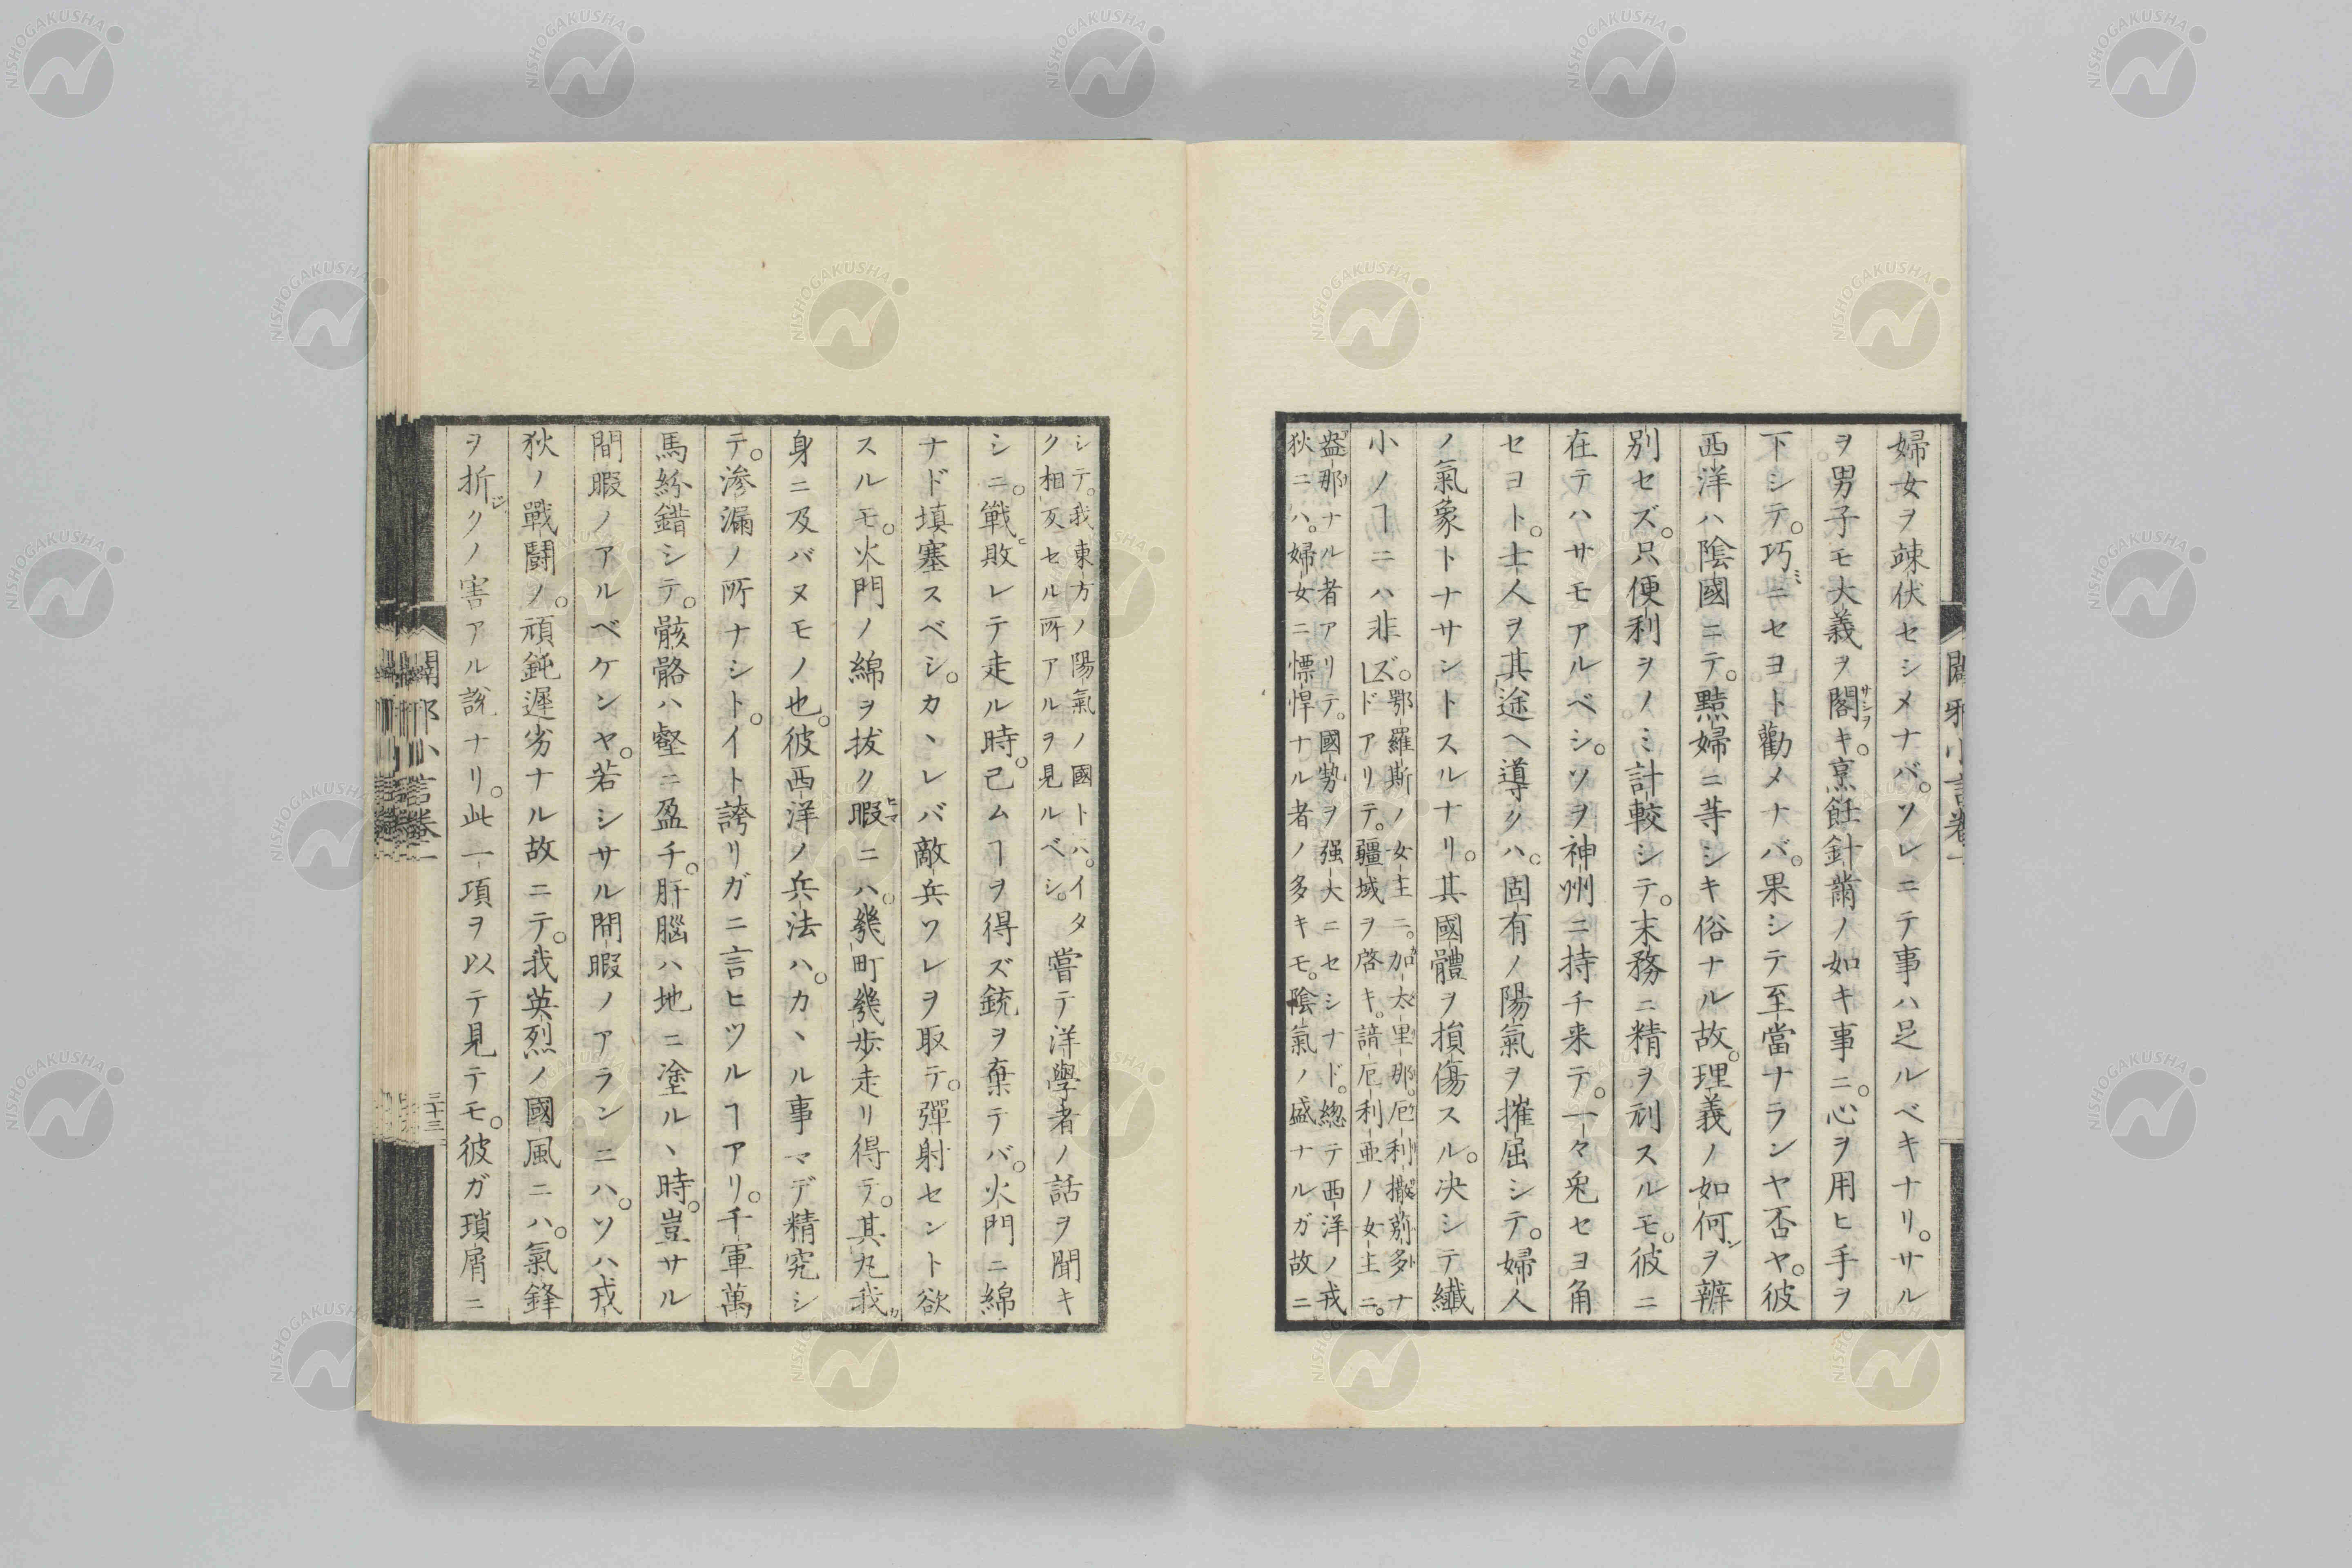 婦女ヲ竦伏セシメナバ。ソレニテ事ハ足ルベキナリ。サル
ヲ男子モ大義ヲ閣キ。烹飪針黹ノ如キ事ニ。心ヲ用ヒ手ヲ
下シテ。巧ミニセヨト勸メナバ。果シテ至當ナランヤ否ヤ。彼
西洋ハ陰國ニテ。黠婦ニ等シキ俗ナル故。理義ノ如何ヲ辨
別セズ。只便利ヲノミ計較シテ。末務ニ精ヲ刓スルモ。彼ニ
在テハサモアルベシ。ソヲ神州ニ持チ来テ。一々兎セヨ角
セヨト。士人ヲ其途ヘ導クハ。固有ノ陽氣ヲ摧屈シテ。婦人
ノ氣象トナサントスルナリ。其國體ヲ損傷スル。决シテ纎
小ノヿニハ非ズ。鄂羅斯ノ女主ニ。加太里那。厄利撒莂多ナ
ドアリテ。疆域ヲ啓キ。諳厄利亜ノ女主ニ。
盎那ナル者アリテ。國勢ヲ强大ニセシナド。緫テ西洋ノ戎
狄ニハ。婦女ニ慓悍ナル者ノ多キモ。陰氣ノ盛ナルガ故ニ
闢邪小言卷一
シテ。我東方ノ陽氣ノ國トハ。イタ
ク相反セル所アルヲ見ルベシ。
嘗テ洋學者ノ話ヲ聞キ
シニ。戰敗レテ走ル時。已ムヿヲ得ズ銃ヲ棄テバ。火門ニ綿
ナド填塞スベシ。カヽレバ敵兵ワレヲ取テ。彈射セント欲
スルモ。火門ノ綿ヲ拔ク暇ニハ。幾町幾歩走リ得テ。其丸我
身ニ及バヌモノ也。彼西洋ノ兵法ハ。カヽル事マデ精究シ
テ。滲漏ノ所ナシト。イト誇リガニ言ヒツルヿアリ。千軍萬
馬紛錯シテ。骸骼ハ壑ニ盈チ。肝腦ハ地ニ塗ルヽ時。豈サル
間暇ノアルベケンヤ。若シサル間暇ノアランニハ。ソハ戎
狄ノ戰鬪ノ。頑鈍遲劣ナル故ニテ。我英烈ノ國風ニハ。氣鋒
ヲ折クノ害アル說ナリ。此一項ヲ以テ見テモ。彼ガ瑣屑ニ
闢邪小言卷一
三十三